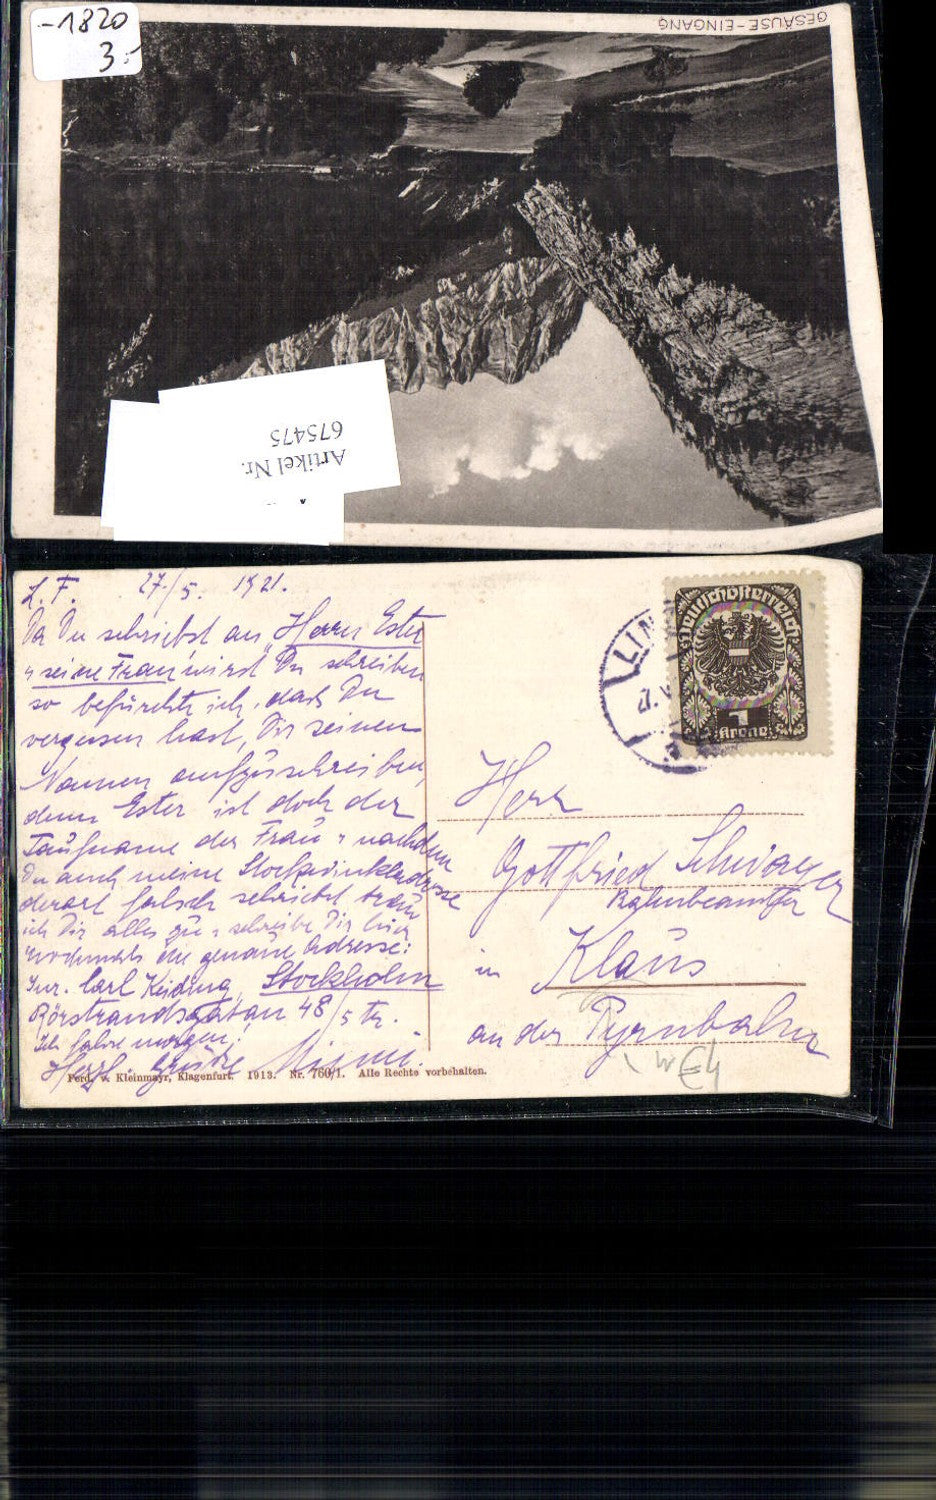 -1820
3.-
GESÄUSE-EINGANG
Artikel Nr.
675475
L. F. 27./5. 1921.
Da Du schriebst an "Herrn Ester
u seine Frau" wird Du schreiben
so befürchte ich, dass Du
vergessen hast, Dir seinen
Namen aufzuschreiben,
denn Ester ist doch der
Taufname der Frau u nachdem
Du auch meine Stockholmeradresse
derart falsch schriebst traue
ich Dir alles zu u schreibe Dir hier
nochmals die genaue Adresse:
Jur. Carl Keiding, Stockholm
Rörstrandsgatan 48/5 tr.
Ich fahre morgen,
Herzl. Grüsse Minni.
Ferd. v. Kleinmayr, Klagenfurt. 1913. Nr. 760/1. Alle Rechte vorbehalten.
Deutschösterreich
1
Krone
LIN
Herr
Gottfried Schwayer
Bahnbeamter
in Klaus
an der Pyrnbahn